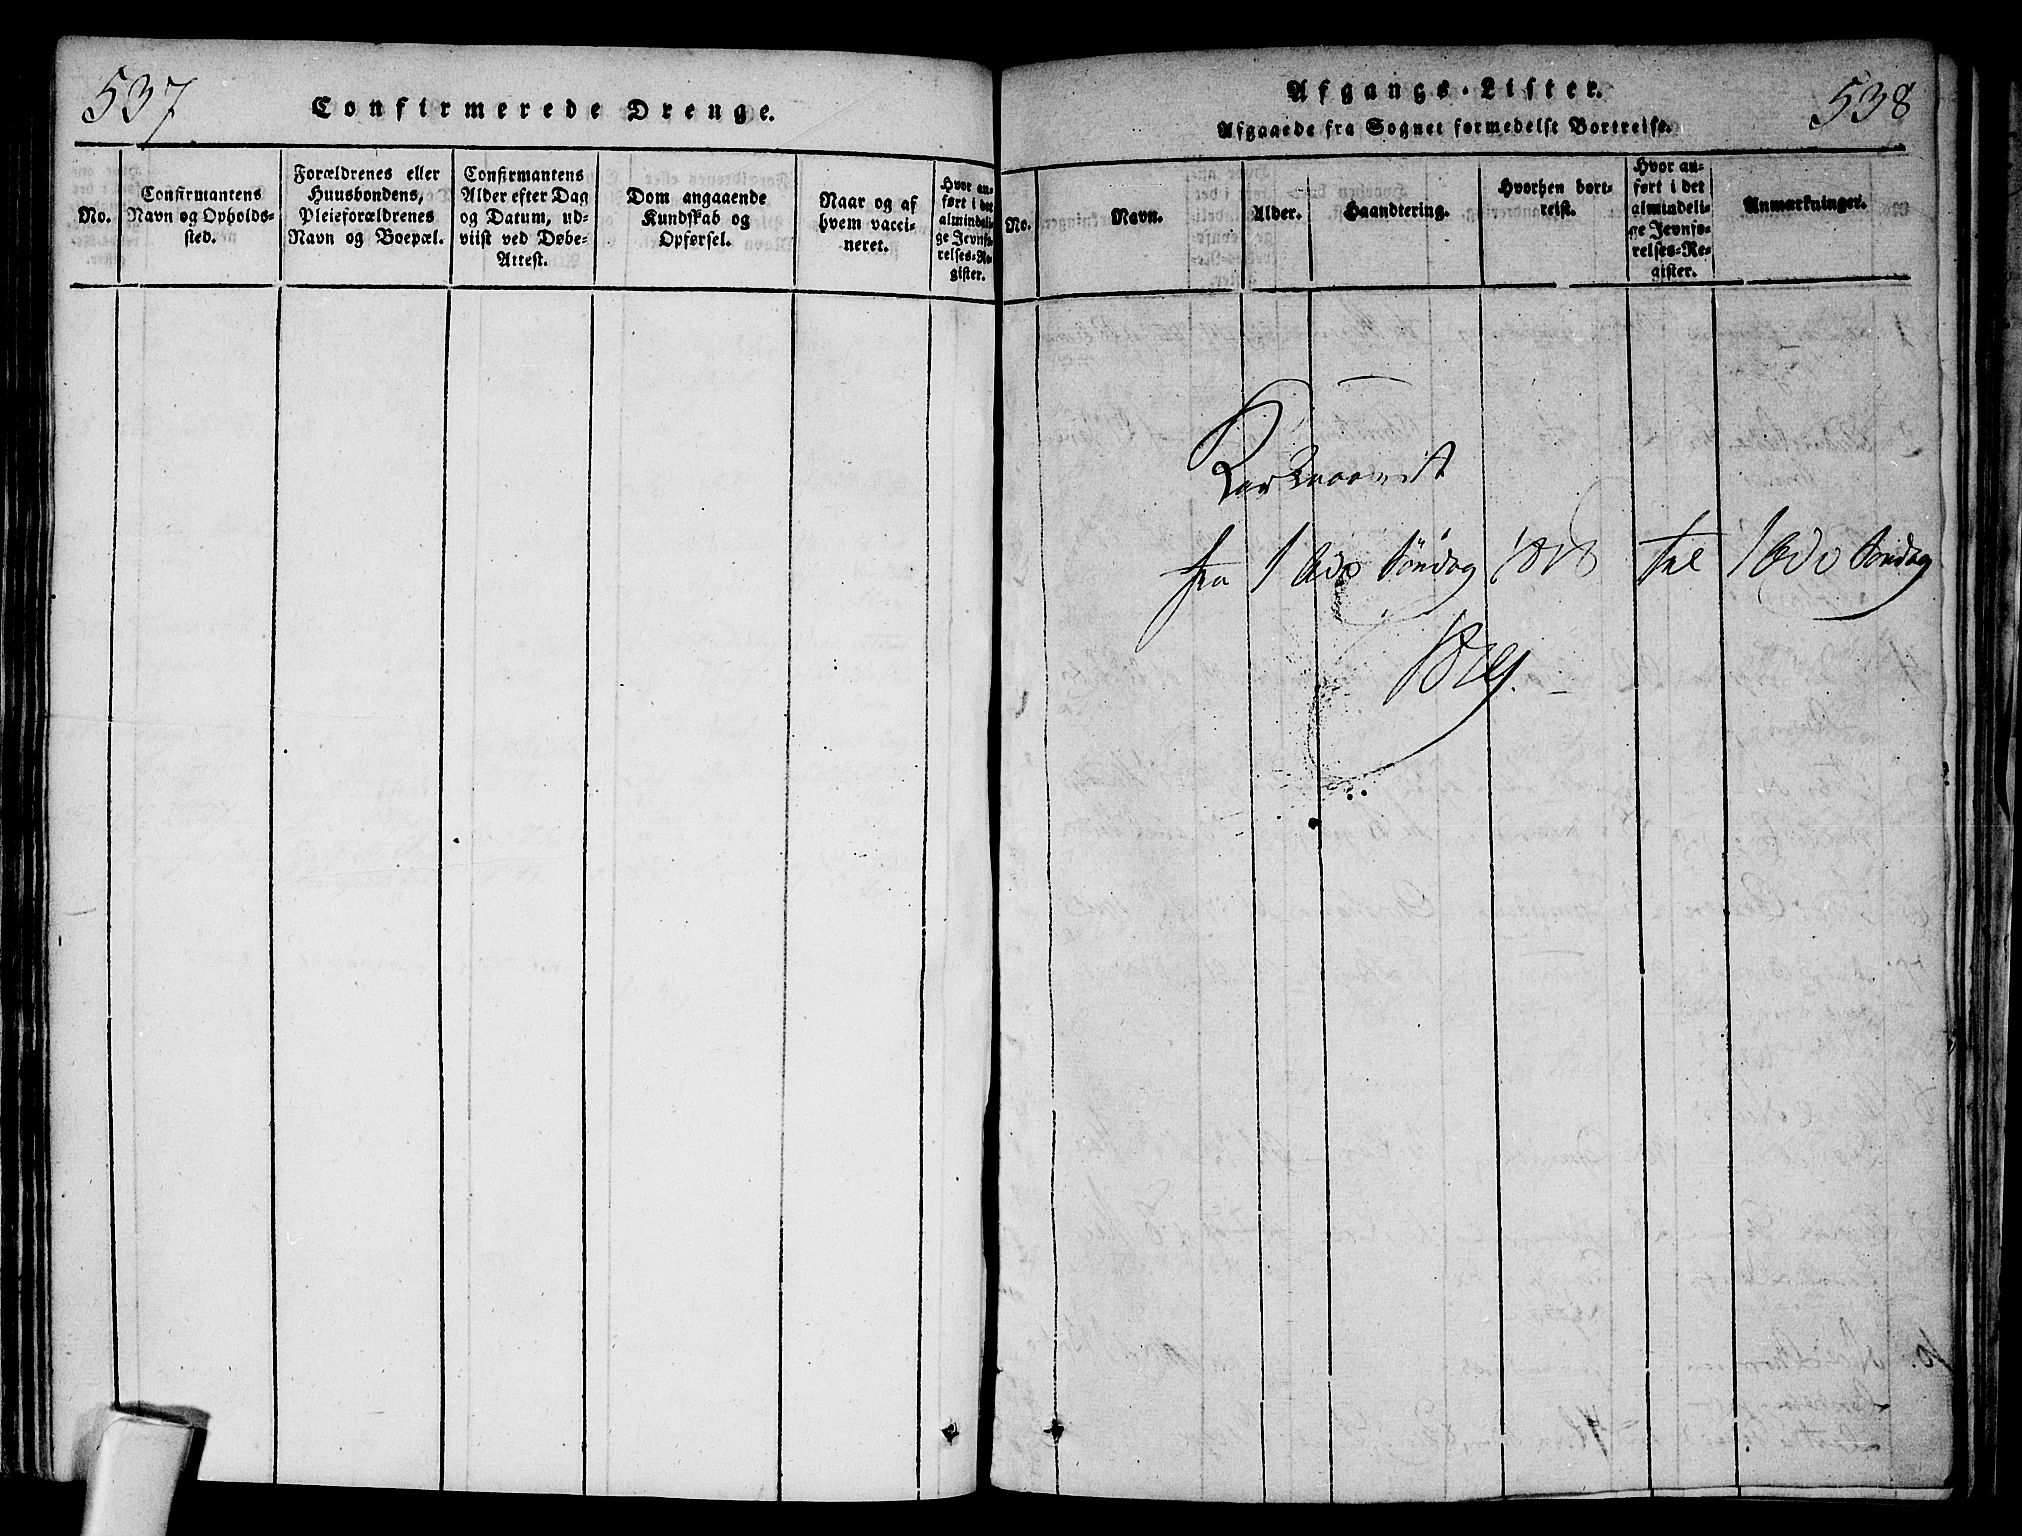 537
Confirmerede Drenge.
No.
Confirmantens
Navn og Opholds-
sted.
Forældrenes eller
Huusbondens,
Pleieforældrenes
Navn og Boepæl.
Confirmantens
Alder efter Dag
og Datum, ud-
viist ved Døbe-
Attest.
Dom angaaende
Kundskab og
Opførsel.
Naar og af
hvem vacci-
neret.
Hvor an-
ført i det
almindeli-
ge Jevnfø-
relses-Re-
gister.
538
Afgangs-Lister.
Afgaaede fra Sognet formedelst Bortreise.
No.
Navn.
Alder.
Haandtering.
Hvorhen bort-
reist.
Hvor an-
ført i det
almindeli-
ge Jevnfø-
relses-Re-
gister.
Anmærkninger.
fra 1 Adv Søndag 1818 til 1 Adv Søndag